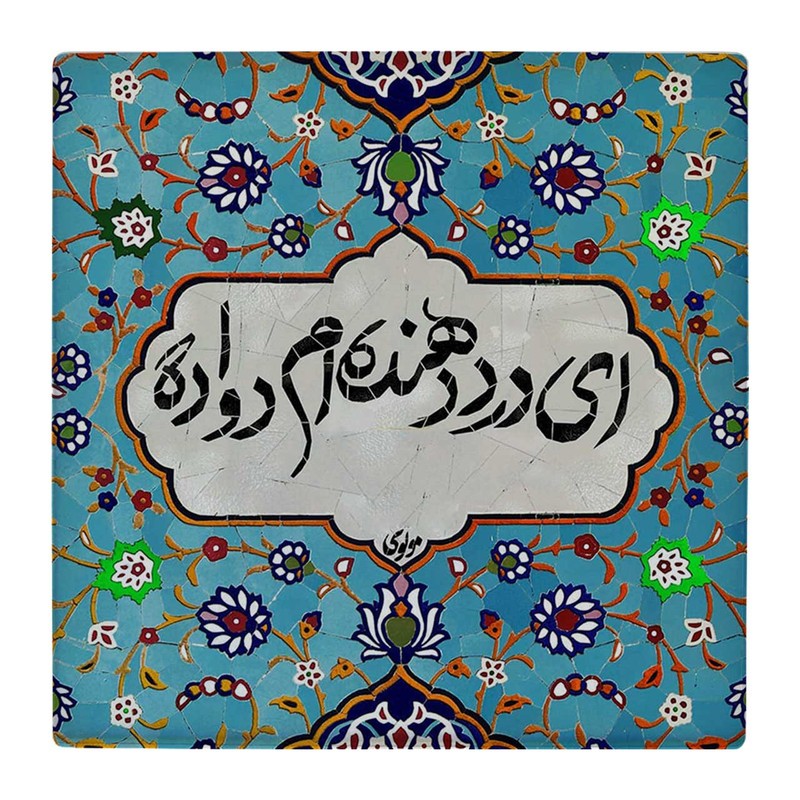 ای درد دهنده‌ام دوا ده
مولوی